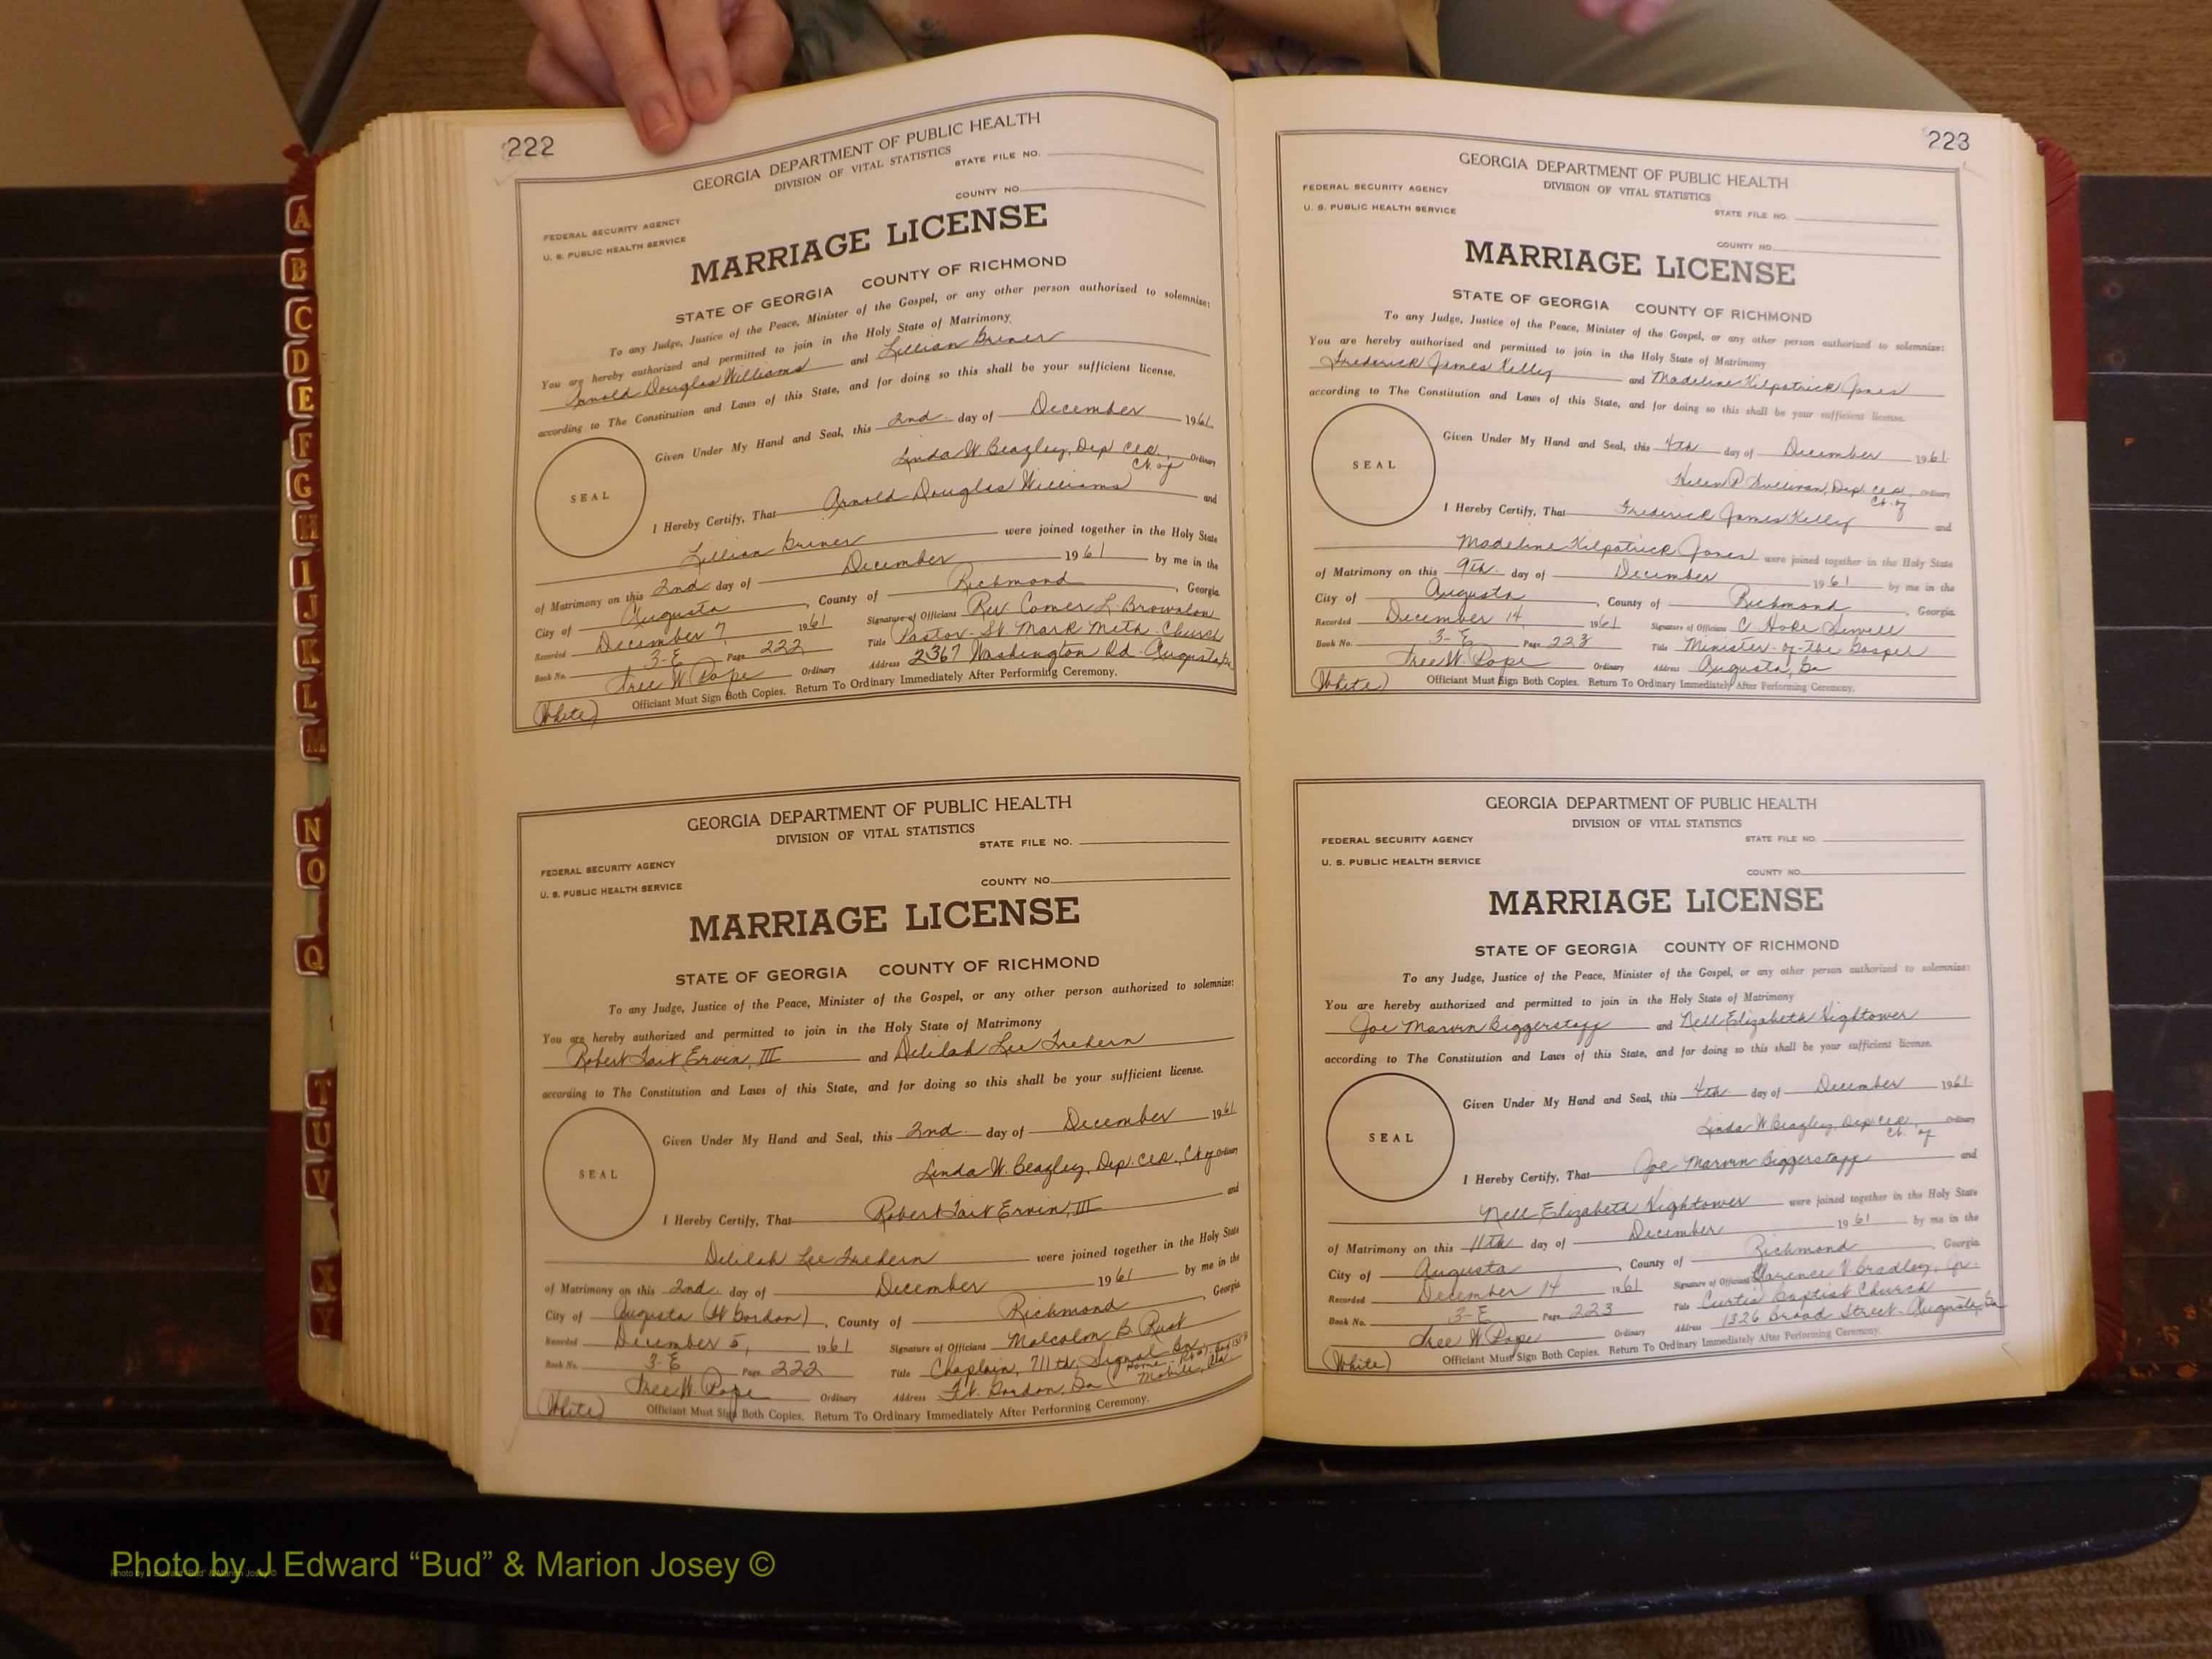 222
GEORGIA DEPARTMENT OF PUBLIC HEALTH
DIVISION OF VITAL STATISTICS
STATE FILE NO.
COUNTY NO.
FEDERAL SECURITY AGENCY
U. S. PUBLIC HEALTH SERVICE
MARRIAGE LICENSE
STATE OF GEORGIA COUNTY OF RICHMOND
To any Judge, Justice of the Peace, Minister of the Gospel, or any other person authorized to solemnize:
You are hereby authorized and permitted to join in the Holy State of Matrimony
Arnold Douglas Williams and Lillian Griner
according to The Constitution and Laws of this State, and for doing so this shall be your sufficient license.
Given Under My Hand and Seal, this 2nd day of December 1961
Linda W. Beazley, Dep Clk., Ct. of Ordinary
SEAL
I Hereby Certify, That Arnold Douglas Williams and
Lillian Griner were joined together in the Holy State
of Matrimony on this 2nd day of December 1961 by me in the
City of Augusta, County of Richmond, Georgia
Recorded December 7, 1961 Signature of Officiant Rev. Comer L.
Book No. 3-E Page 222 Title Pastor - St Mark Meth. Church
Tree W. Pope Ordinary Address 2367 Washington Rd. Augusta
Officiant Must Sign Both Copies. Return To Ordinary Immediately After Performing Ceremony.
(White)
GEORGIA DEPARTMENT OF PUBLIC HEALTH
DIVISION OF VITAL STATISTICS
STATE FILE NO.
FEDERAL SECURITY AGENCY
U. S. PUBLIC HEALTH SERVICE
COUNTY NO.
MARRIAGE LICENSE
STATE OF GEORGIA COUNTY OF RICHMOND
To any Judge, Justice of the Peace, Minister of the Gospel, or any other person authorized to solemnize:
You are hereby authorized and permitted to join in the Holy State of Matrimony
Robert Tait Ervin, III and Delilah Lee Trehern
according to The Constitution and Laws of this State, and for doing so this shall be your sufficient license.
Given Under My Hand and Seal, this 2nd day of December 1961
Linda W. Beazley, Dep. Clk., Ct of Ordinary
SEAL
I Hereby Certify, That Robert Tait Ervin, III and
Delilah Lee Trehern were joined together in the Holy State
of Matrimony on this 2nd day of December 1961 by me in the
City of Augusta (Ft Gordon), County of Richmond, Georgia
Recorded December 5, 1961 Signature of Officiant Malcolm B. Rust
Book No. 3-E Page 222 Title Chaplain, 711th, Signal Bn
Tree W. Pope Ordinary Address Ft. Gordon, Ga (Home - Mobile, Ala.
Officiant Must Sign Both Copies. Return To Ordinary Immediately After Performing Ceremony.
(White)
223
GEORGIA DEPARTMENT OF PUBLIC HEALTH
DIVISION OF VITAL STATISTICS
FEDERAL SECURITY AGENCY
U. S. PUBLIC HEALTH SERVICE
STATE FILE NO.
COUNTY NO.
MARRIAGE LICENSE
STATE OF GEORGIA COUNTY OF RICHMOND
To any Judge, Justice of the Peace, Minister of the Gospel, or any other person authorized to solemnize:
You are hereby authorized and permitted to join in the Holy State of Matrimony
Frederick James Kelly and Madeline Kilpatrick Jones
according to The Constitution and Laws of this State, and for doing so this shall be your sufficient license.
Given Under My Hand and Seal, this 4th day of December 1961
Helen P. Sullivan, Dep. Clk., Ct. of Ordinary
SEAL
I Hereby Certify, That Frederick James Kelly and
Madeline Kilpatrick Jones were joined together in the Holy State
of Matrimony on this 9th day of December 1961 by me in the
City of Augusta, County of Richmond, Georgia
Recorded December 14, 1961 Signature of Officiant C Hoke Sewell
Book No. 3-E Page 223 Title Minister-of-the Gospel
Tree W. Pope Ordinary Address Augusta, Ga
Officiant Must Sign Both Copies. Return To Ordinary Immediately After Performing Ceremony.
(White)
GEORGIA DEPARTMENT OF PUBLIC HEALTH
DIVISION OF VITAL STATISTICS
FEDERAL SECURITY AGENCY
STATE FILE NO.
U. S. PUBLIC HEALTH SERVICE
COUNTY NO.
MARRIAGE LICENSE
STATE OF GEORGIA COUNTY OF RICHMOND
To any Judge, Justice of the Peace, Minister of the Gospel, or any other person authorized to solemnize:
You are hereby authorized and permitted to join in the Holy State of Matrimony
Joe Marvin Biggerstaff and Nell Elizabeth Hightower
according to The Constitution and Laws of this State, and for doing so this shall be your sufficient license.
Given Under My Hand and Seal, this 4th day of December 1961
Linda W Beazley, Dep Clk, Ct. of Ordinary
SEAL
I Hereby Certify, That Joe Marvin Biggerstaff and
Nell Elizabeth Hightower were joined together in the Holy State
of Matrimony on this 11th day of December 1961 by me in the
City of Augusta, County of Richmond, Georgia
Recorded December 14 1961 Signature of Officiant Clarence V. Bradley, Jr.
Book No. 3-E Page 223 Title Curtis Baptist Church
Tree W. Pope Ordinary Address 1326 Broad Street - Augusta, Ga
Officiant Must Sign Both Copies. Return To Ordinary Immediately After Performing Ceremony.
(White)
A
B
C
D
E
F
G
H
I
J
K
L
M
N
O
Q
T
U
V
X
Y
Photo by J Edward “Bud” & Marion Josey ©
Photo by J Edward “Bud” & Marion Josey ©